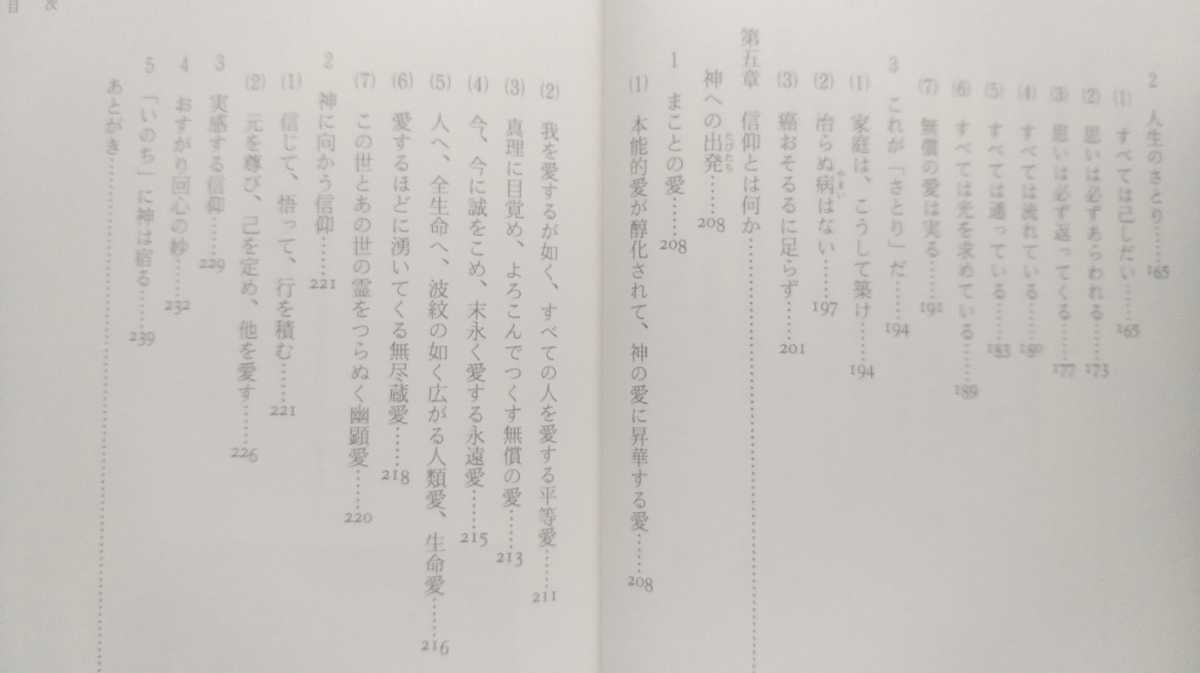 2 人生のさとり……165
(1) すべては己しだい……165
(2) 思いは必ずあらわれる……173
(3) 思いは必ず返ってくる……177
(4) すべては流れている……180
(5) すべては通っている……183
(6) すべては光を求めている……189
(7) 無償の愛は実る……192
3 これが「さとり」だ……194
(1) 家庭は、こうして築け……194
(2) 治らぬ病はない……197
(3) 癌おそるるに足らず……201
第五章 信仰とは何か……
神への出発……208
1 まことの愛……208
(1) 本能的愛が醇化されて、神の愛に昇華する愛……208
(2) 我を愛するが如く、すべての人を愛する平等愛……211
(3) 真理に目覚め、よろこんでつくす無償の愛……213
(4) 今、今に誠をこめ、末永く愛する永遠愛……215
(5) 人へ、全生命へ、波紋の如く広がる人類愛、生命愛……216
(6) 愛するほどに湧いてくる無尽蔵愛……218
(7) この世とあの世の霊をつらぬく幽顕愛……220
2 神に向かう信仰……221
(1) 信じて、悟って、行を積む……221
(2) 元を尊び、己を定め、他を愛す……226
3 実感する信仰……229
4 おすがり回心の妙……232
5 「いのち」に神は宿る……239
あとがき……
目次